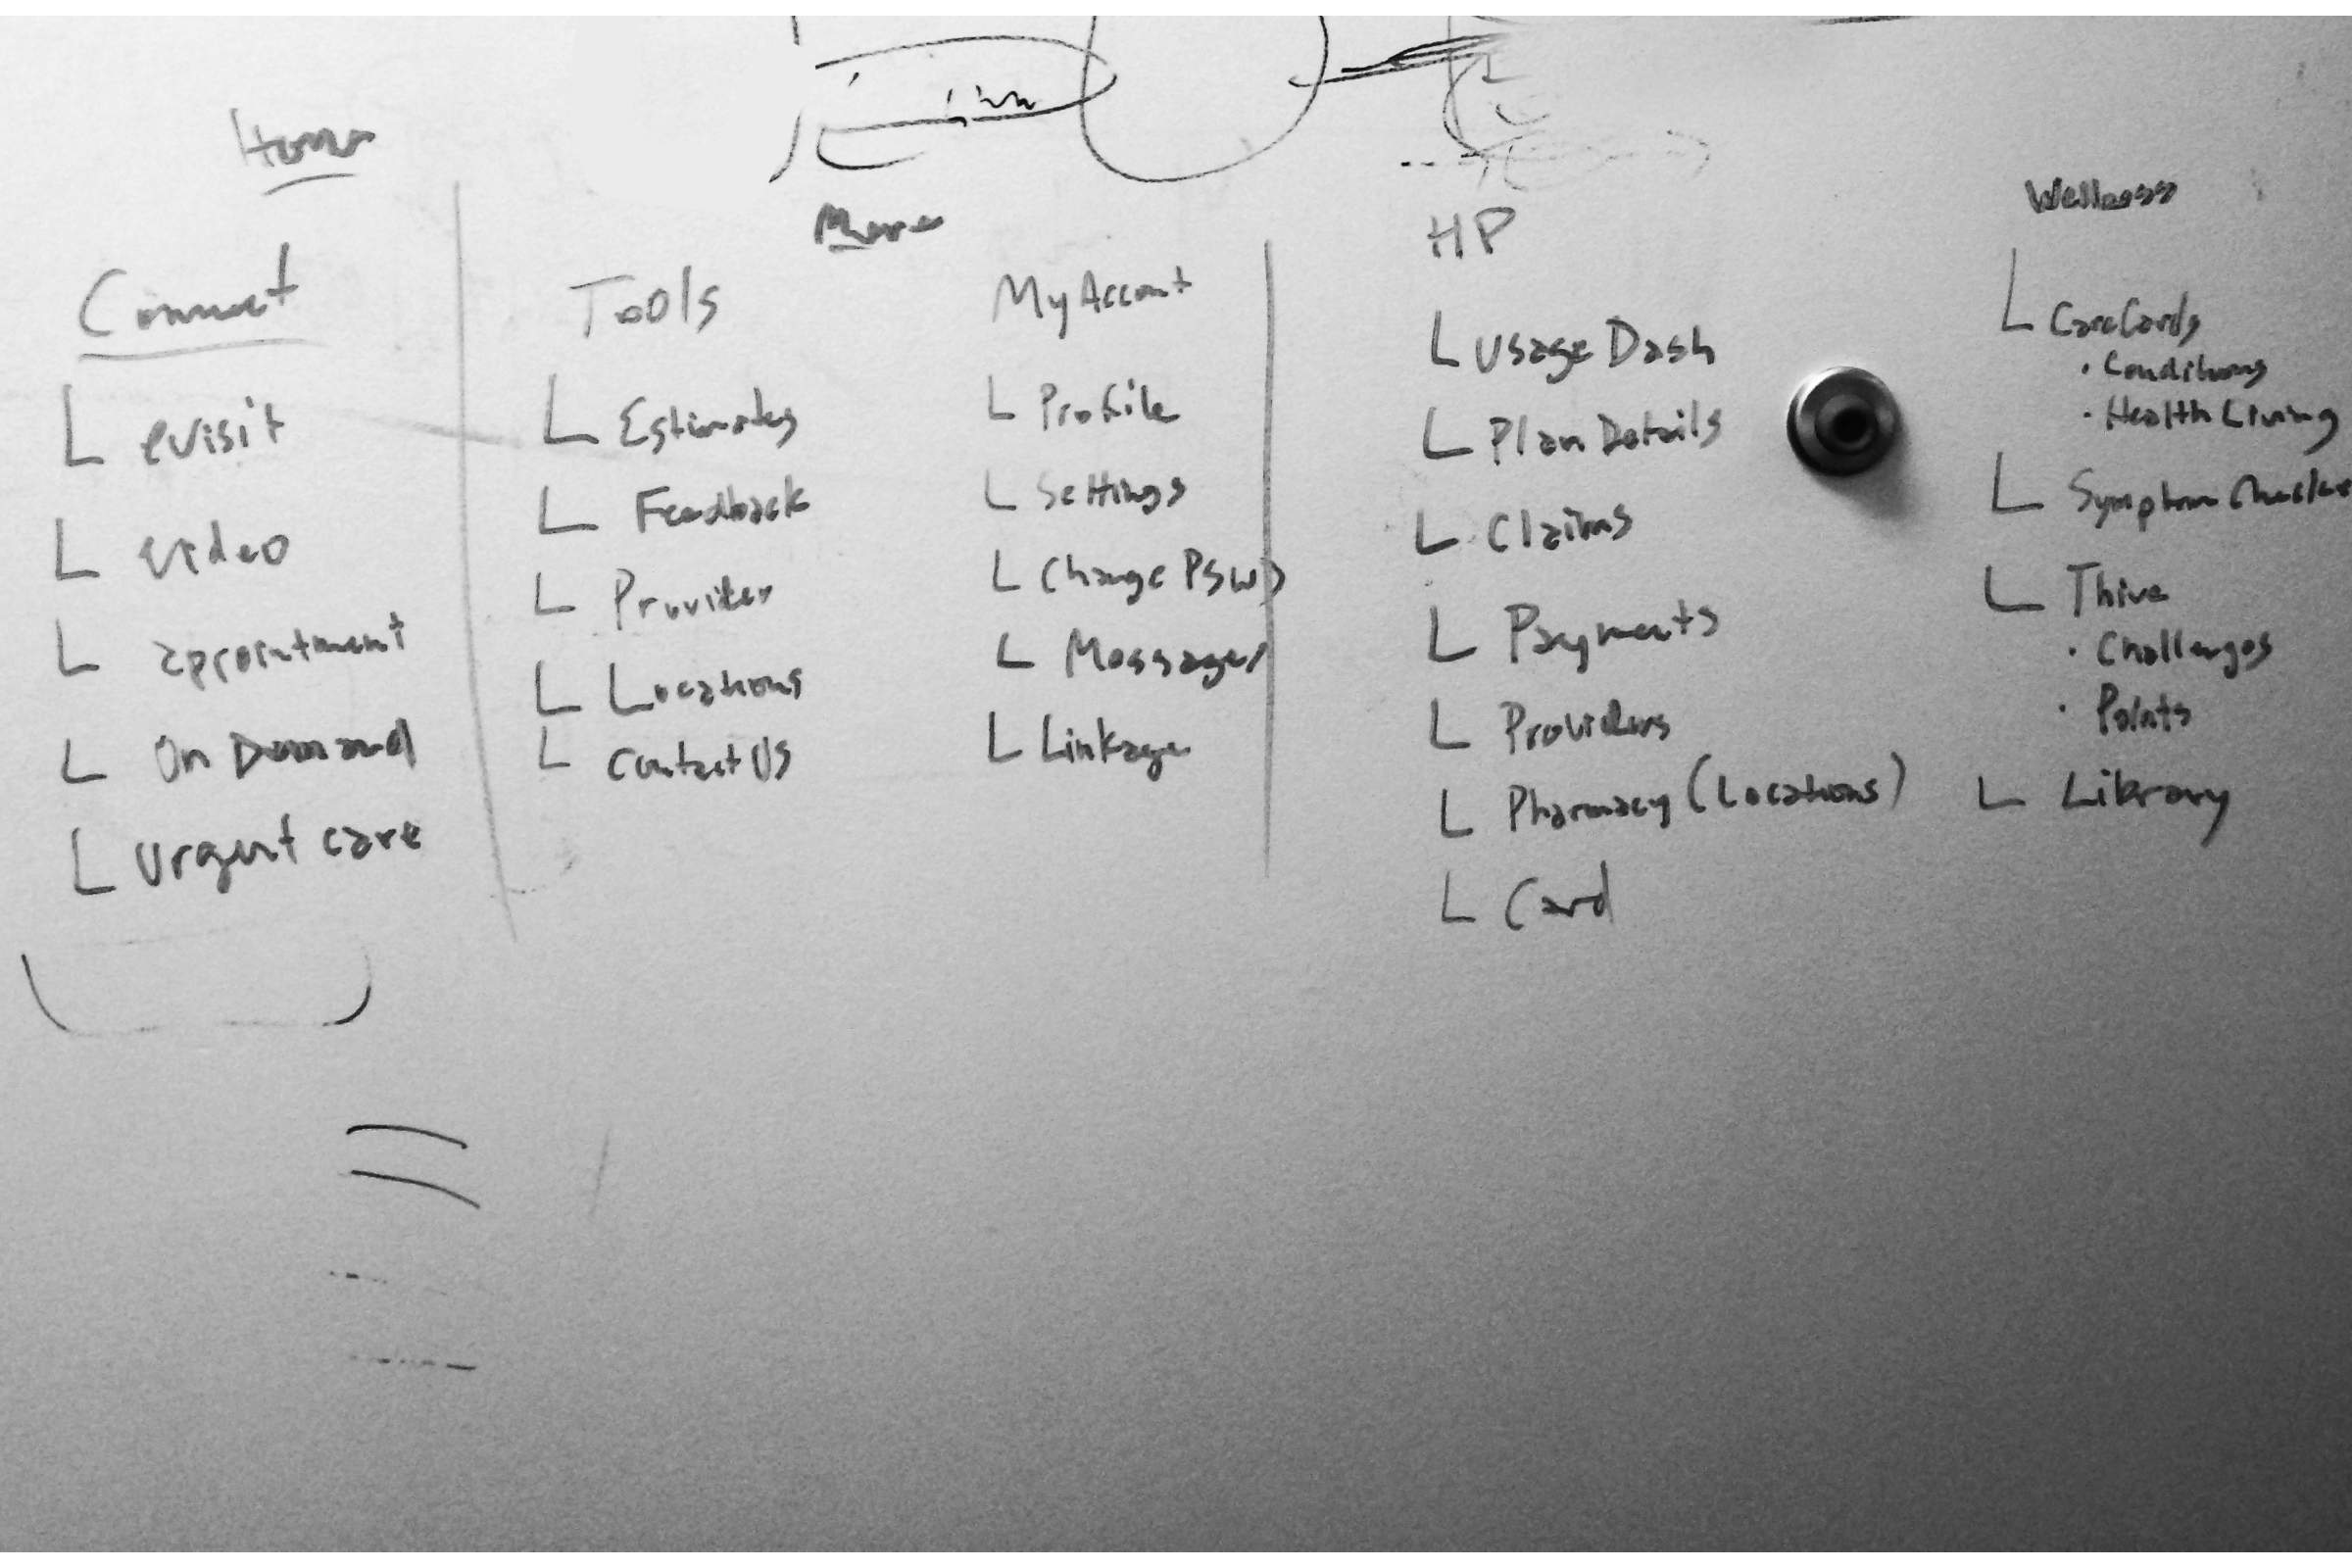 Home
Connect
evisit
video
appointment
On Demand
Urgent care
More
Tools
Estimates
Feedback
Provider
Locations
Contact Us
My Account
Profile
Settings
Change PSWD
Messages
Linkage
HP
Usage Dash
Plan Details
Claims
Payments
Providers
Pharmacy (Locations)
Card
Wellness
CareCards
· Conditions
· Health Living
Symptom Checker
Thive
· Challenges
· Points
Library